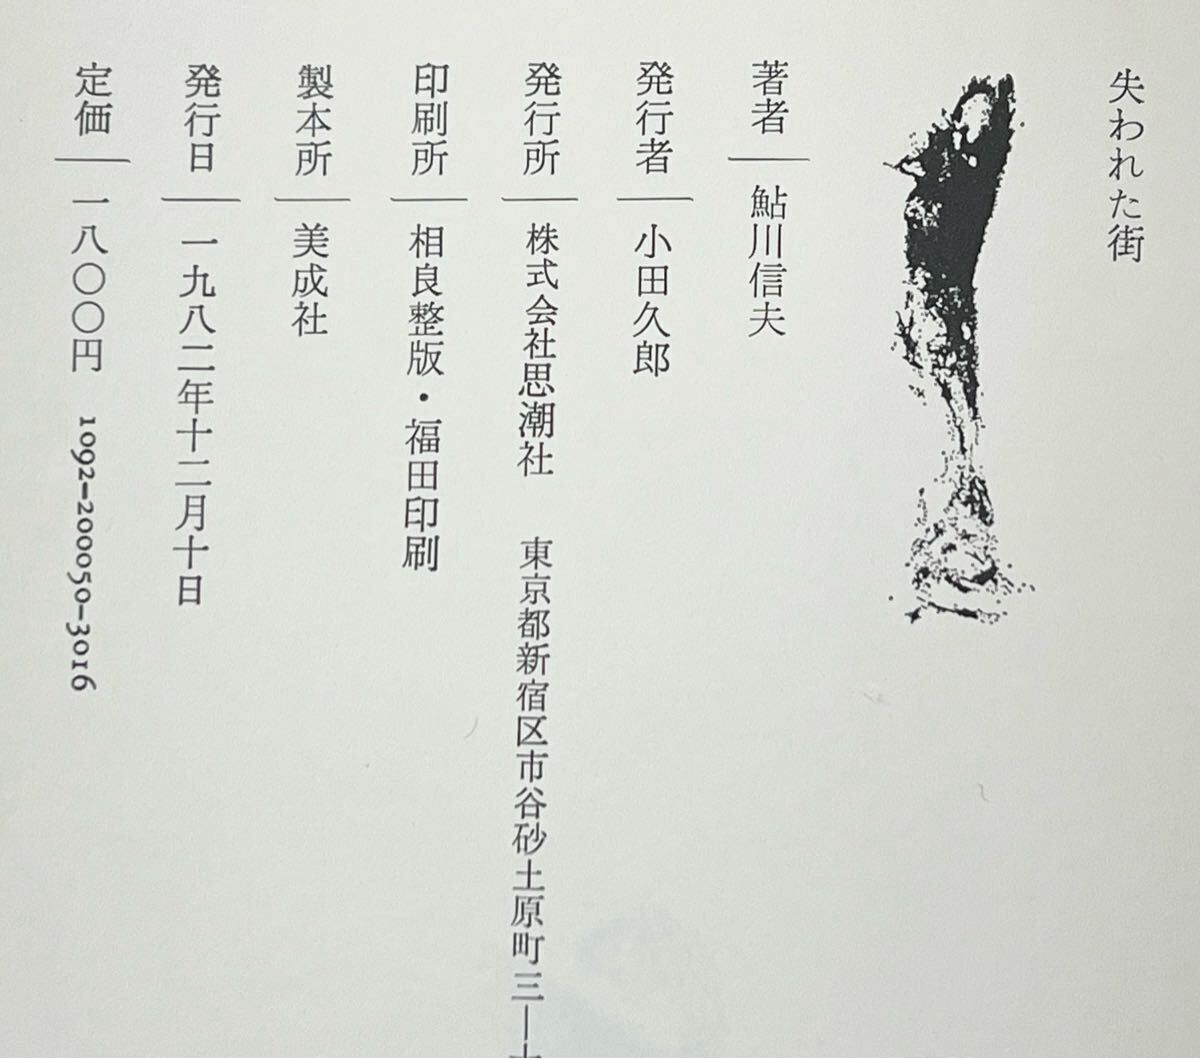 失われた街
著者 鮎川信夫
発行者 小田久郎
発行所 株式会社思潮社 東京都新宿区市谷砂土原町三―
印刷所 相良整版・福田印刷
製本所 美成社
発行日 一九八二年十二月十日
定価 一八〇〇円 1092-200050-3016